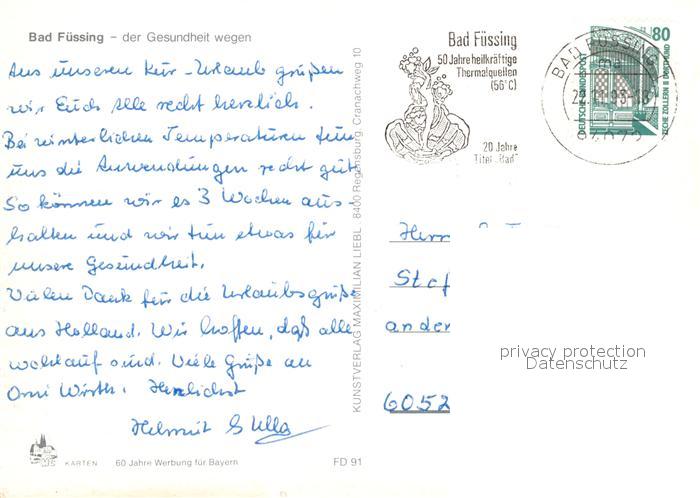 Bad Füssing – der Gesundheit wegen
Aus unserem Kur-Urlaub grüßen
wir Euch alle recht herzlich.
Bei winterlichen Temperaturen tun
uns die Anwendungen recht gut.
So können wir es 3 Wochen aus-
halten und wir tun etwas für
unsere Gesundheit.
Vielen Dank für die Urlaubsgrüße
aus Holland. Wir hoffen, daß alle
wohlauf sind. Viele Grüße an
Omi Wirth. Herzlichst
Helmut & Ulla
KARTEN
60 Jahre Werbung für Bayern
FD 91
KUNSTVERLAG MAXIMILIAN LIEBL 8400 Regensburg Cranachweg 10
Bad Füssing
50 Jahre heilkräftige
Thermalquellen
(56°C)
20 Jahre
Titel „Bad"
BAD FÜSSING
80
DEUTSCHE BUNDESPOST
ZECHE ZOLLERN II DORTMUND
Herr
ander
6052
privacy protection
Datenschutz